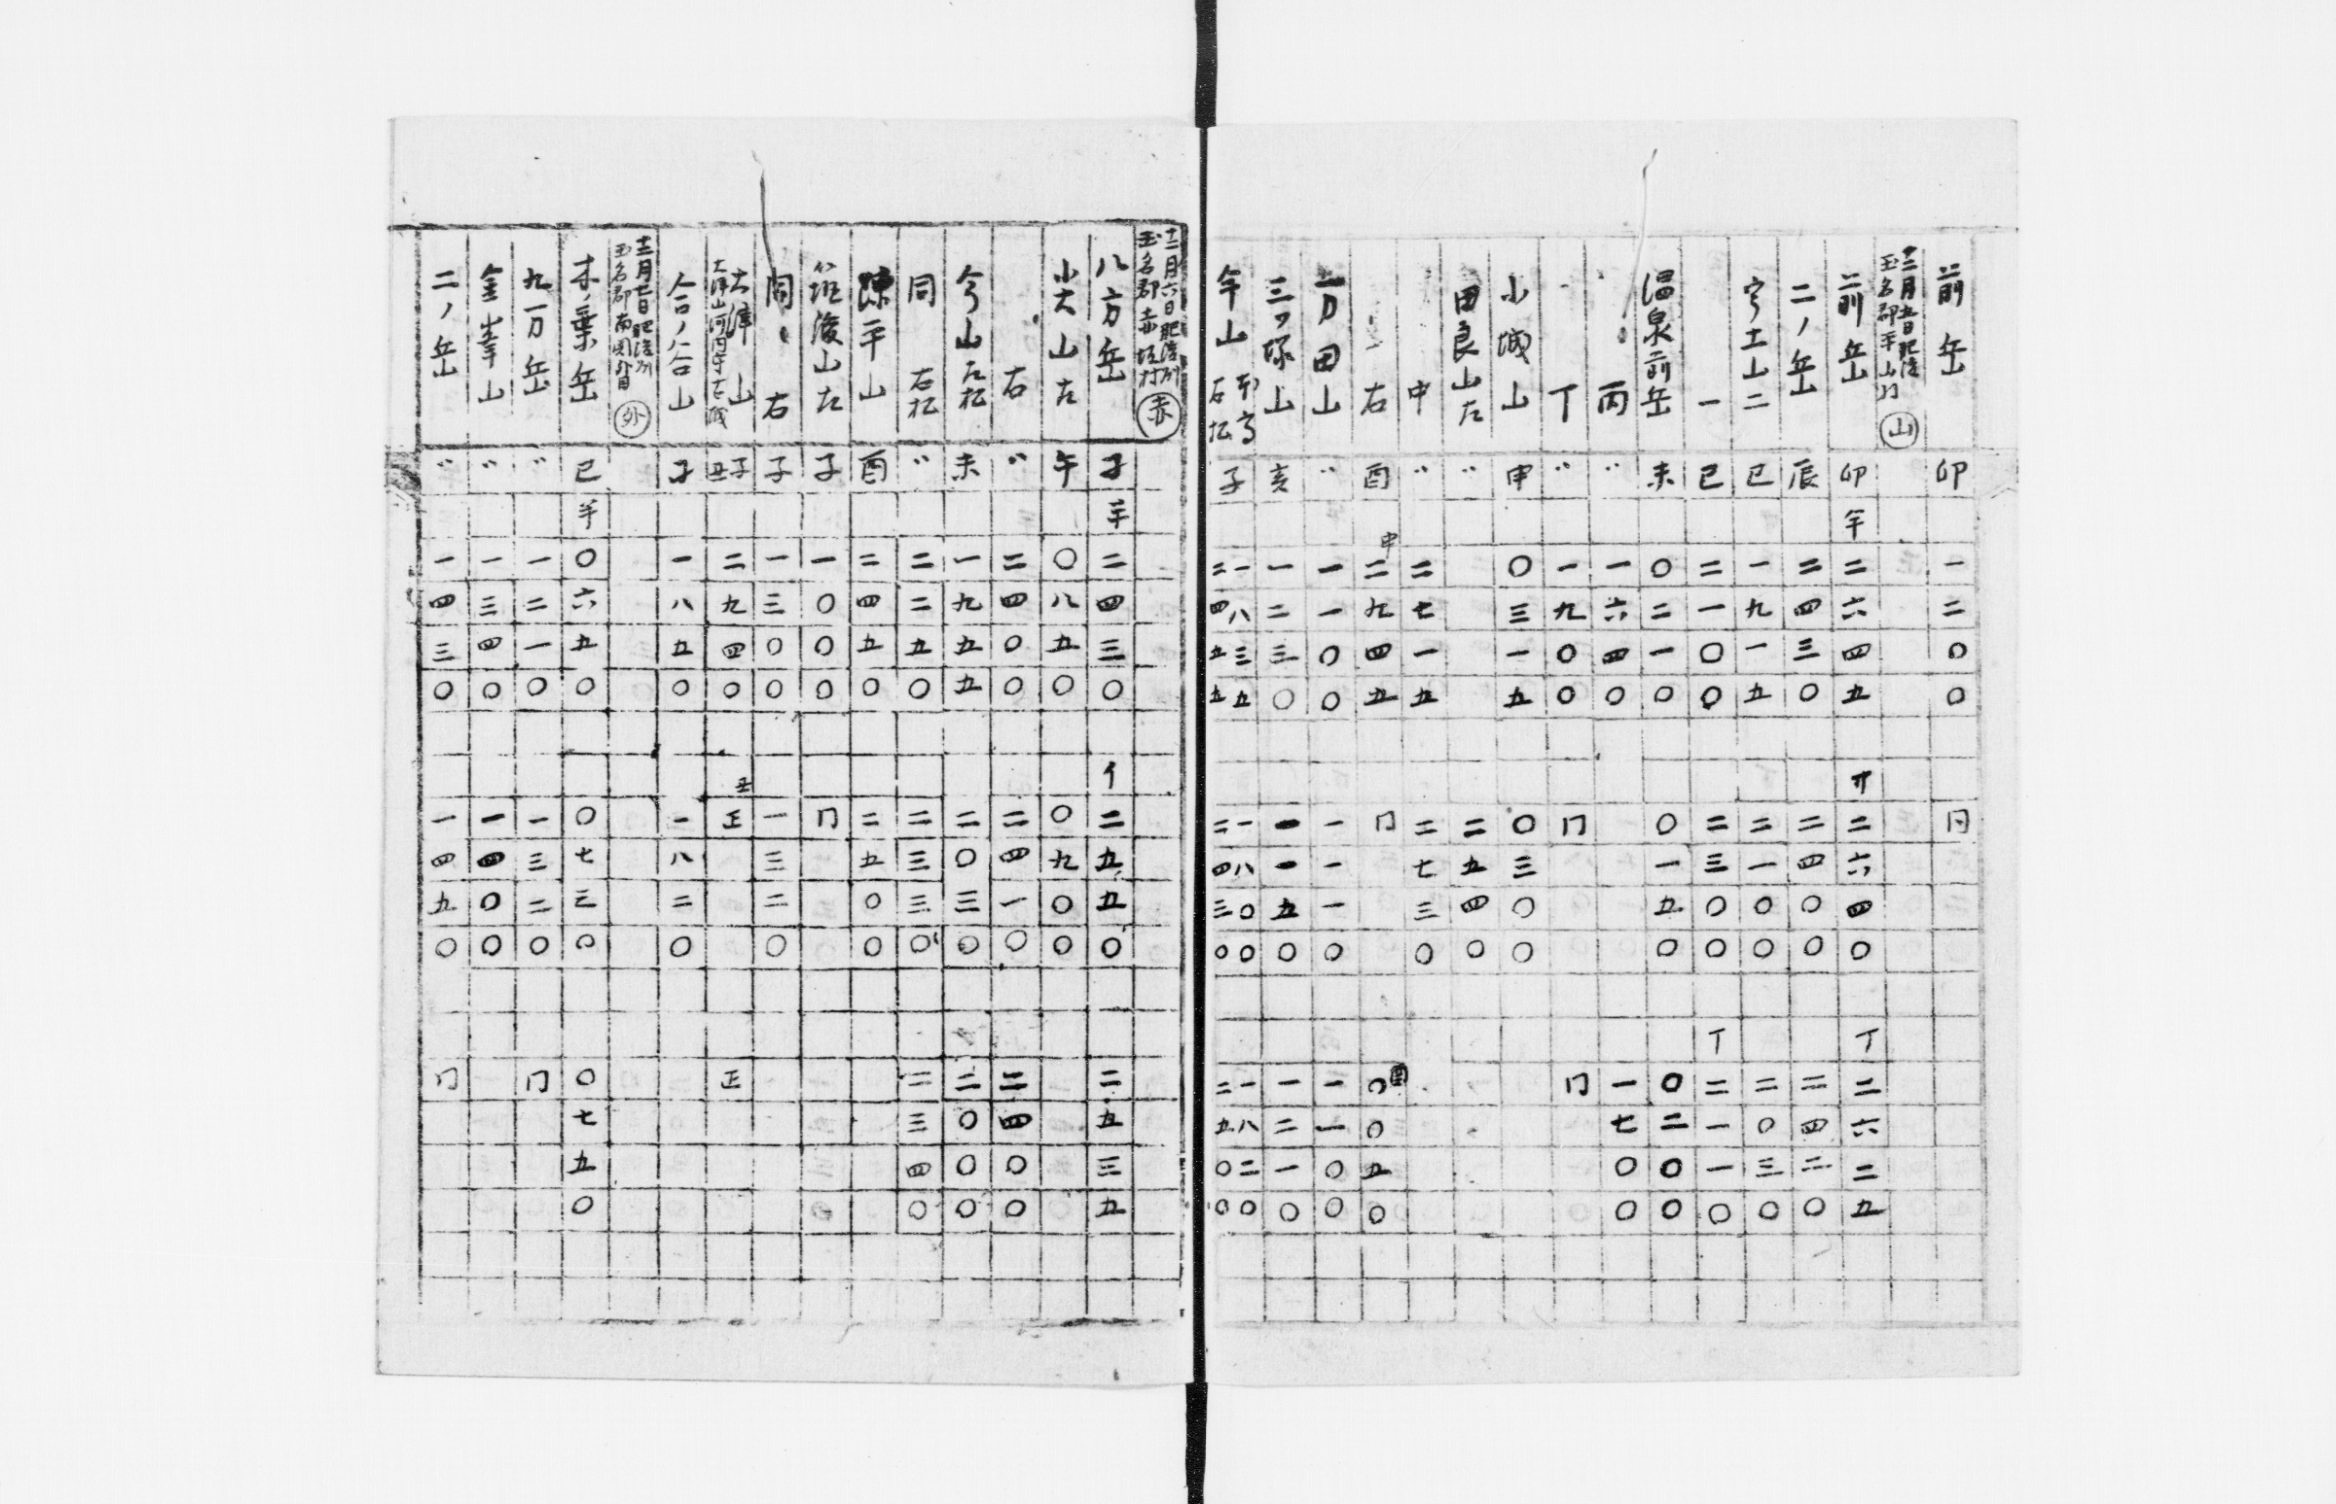 前岳 卯 一二〇〇 同
十二月五日肥後
玉名郡平山村 山
前岳 卯 半 二六四五 二六四〇 丁 二六二五
二ノ岳 辰 二四三〇 二四〇〇 二四二〇
宇土山二 巳 一九一五 二一〇〇 二〇三〇
一 巳 二一〇〇 二三〇〇 丁 二一一〇
温泉前岳 未 〇二一〇 〇一五〇 〇二〇〇
〃 丙 〃 一六四〇 一七〇〇
〃 丁 〃 一九〇〇 同 同
小城山 申 〇三一五 〇三〇〇
田良山左 〃 二五四〇
中 〃 二七一五 二七三〇
〃 右 酉 申 二九四五 同 酉 〇〇五〇
万田山 〃 一一〇〇 一一一〇 一一〇〇
三ツ塚山 亥 一二三〇 一一五〇 一二一〇
年山 右松 子 一八三五 一八〇〇 一八二〇
二四五五 二四三〇 二五〇〇
十二月六日肥後州
玉名郡赤坂村 赤
八方岳 子 半 二四三〇 イ 二五五〇 二五三五
小大山左 午 〇八五〇 〇九〇〇
〃 右 〃 二四〇〇 二四一〇 二四〇〇
今山左松 未 一九五五 二〇三〇 二〇〇〇
同 右松 〃 二二五〇 二三三〇 二三四〇
陳平山 酉 二四五〇 二五〇〇
筱後山左 子 一〇〇〇 同
同〃 右 子 一三〇〇 一三二〇
大津山 子 丑 二九四〇 丑 正 正
合ノ谷山 子 一八五〇 一八二〇
十二月七日肥後州
玉名郡南関外目 外
木ノ葉岳 巳 半 〇六五〇 〇七三〇 〇七五〇
九万岳 〃 一二一〇 一三二〇 同
金峯山 〃 一三四〇 一四〇〇
二ノ岳 〃 一四三〇 一四五〇 同